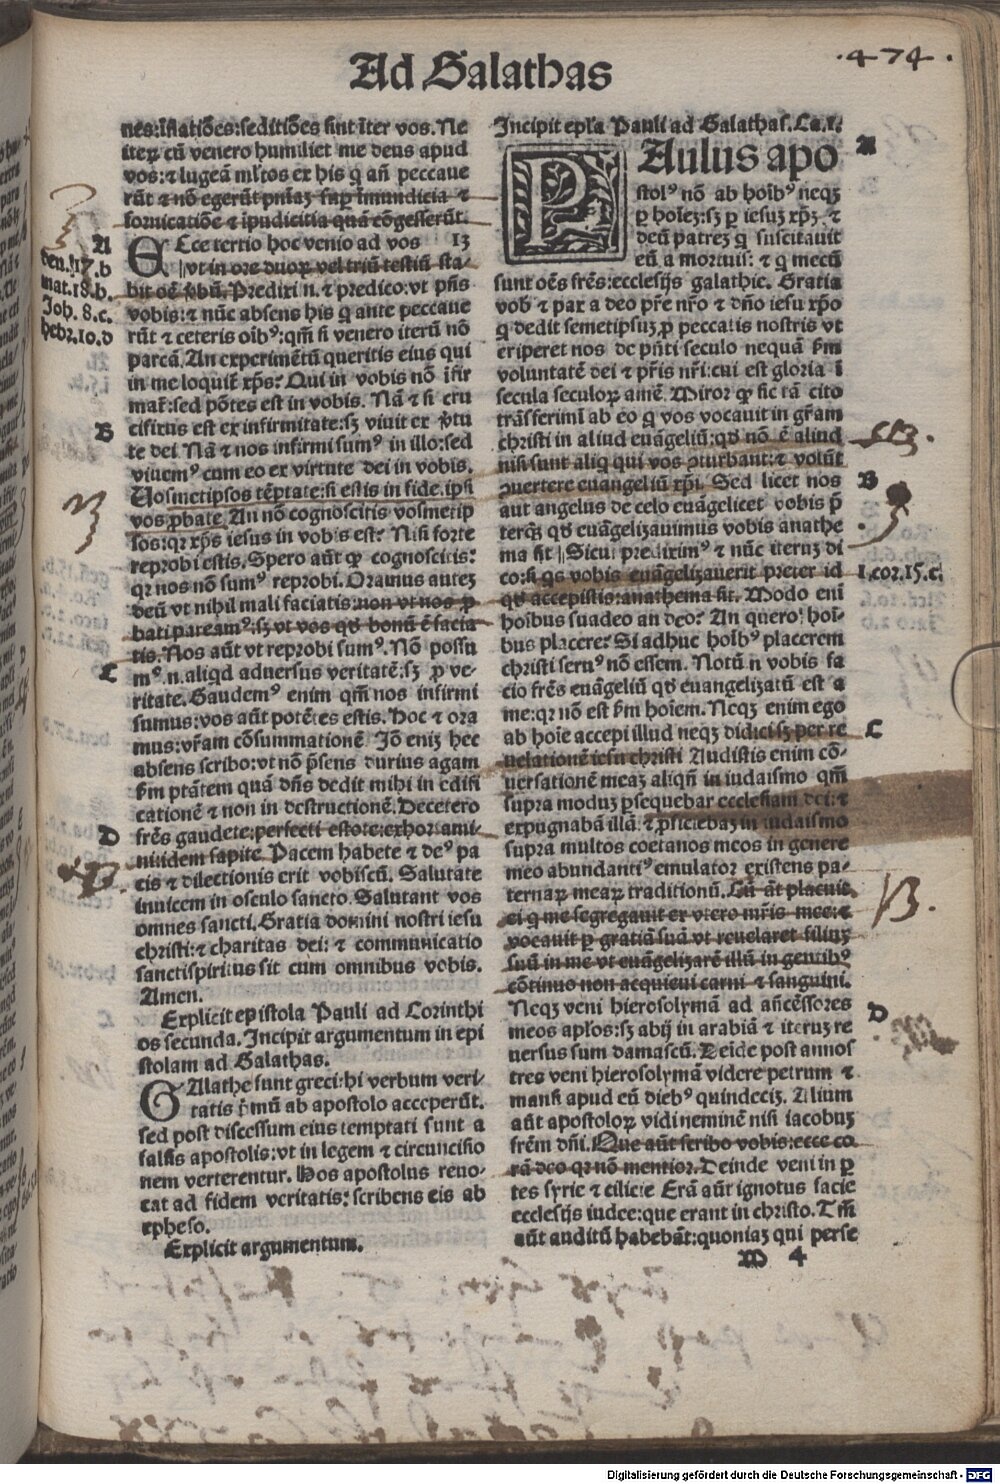 Ad Galathas
.474.
nes:īflatiões:seditiões sint īter vos. Ne
iteꝝ cū venero humiliet me deus apud
vos: ⁊ lugeā ml̓tos ex his q̄ añ peccaue
rūt ⁊ nō egerūt pn̄iaꝫ suꝑ īmundicia ⁊
fornicatiōe ⁊ īpudicitia quā cōgesserūt.
ECce tertio hoc venio ad vos 13
vt in ore duoꝝ vel triū testiū sta-
bit oē v̓bū. Predixi n. ⁊ predico: vt pn̄s
vobis: ⁊ nūc absens his q̄ ante peccaue
rūt ⁊ ceteris oībꝰ: qm̄ si venero iterū nō
parcā. An experimētū queritis eius qui
in me loquit̄ xp̄s? Qui in vobis nō īfir
mat̄: sed pōtes est in vobis. Nā ⁊ si cru
cifixus est ex infirmitate: sꝫ viuit ex v̓tu
te dei. Nā ⁊ nos infirmi sumꝰ in illo: sed
viuemꝰ cum eo ex virtute dei in vobis.
Uosmetipsos tēptate: si estis in fide. ipsi
vos ꝓbate. An nō cognoscitis vosmetip
sos: qꝛ xp̄s iesus in vobis est? Nisi forte
reprobi estis. Spero aūt ꝙ cognoscitis:
qꝛ nos nō sumꝰ reprobi. Oramus auteꝫ
deū vt nihil mali faciatis: non vt nos ꝓ
bati pareamꝰ: sꝫ vt vos qđ bonū ē facia
tis. Nos aūt vt reprobi sumꝰ. Nō possu
mꝰ .n. aliqd aduersus veritatē: sꝫ ꝓ ve-
ritate. Gaudemꝰ enim qm̄ nos infirmi
sumus: vos aūt potētes estis. Hoc ⁊ ora
mus: vr̄am cōsummationē. Iō eniꝫ hec
absens scribo: vt nō p̄sens durius agam
ẜm ptātem quā dn̄s dedit mihi in edifi
cationē ⁊ non in destructionē. Decetero
fr̄es gaudete: perfecti estote: exhortami-
ni: idem sapite. Pacem habete ⁊ deꝰ pa
cis ⁊ dilectionis erit vobiscū. Salutate
inuicem in osculo sancto. Salutant vos
omnes sancti. Gratia domini nostri iesu
christi: ⁊ charitas dei: ⁊ communicatio
sanctispiritus sit cum omnibus vobis.
Amen.
Explicit epistola Pauli ad Corinthi
os secunda. Incipit argumentum in epi
stolam ad Galathas.
GAlathe sunt greci: hi verbum veri-
tatis p̄mū ab apostolo acceperūt.
sed post discessum eius temptati sunt a
falsis apostolis: vt in legem ⁊ circuncisio
nem verterentur. Hos apostolus reuo-
cat ad fidem veritatis: scribens eis ab
epheso.
Explicit argumentum.
A
Den.17.b
mat.18.b.
Joh.8.c.
hebr.10.d
B
C
D
Incipit epl̓a Pauli ad Galathas. Ca.1.
PAulus apo
stolꝰ nō ab hoībꝰ neqꝫ
ꝑ hoīeꝫ: sꝫ ꝑ iesuꝫ xp̄ꝫ ⁊
deū patreꝫ q̄ suscitauit
eū a mortuis: ⁊ q̄ mecū
sunt oēs fr̄es: ecclesijs galathie. Gratia
vob̓ ⁊ pax a deo pr̄e nr̄o ⁊ dn̄o iesu xp̄o
q̄ dedit semetipsuꝫ ꝓ peccatis nostris vt
eriperet nos de pn̄ti seculo nequā ẜm
voluntatē dei ⁊ pr̄is nr̄i: cui est gloria ī
secula seculoꝝ amē. Miror ꝙ sic tā cito
trāsferimī ab eo q̄ vos vocauit in gr̄am
christi in aliud euāgeliū: qđ nō ē aliud
nisi sunt aliq̄ qui vos ꝯturbant: ⁊ volūt
ꝯuertere euangeliū xp̄i. Sed licet nos
aut angelus de celo euāgelicet vobis p̄
terqꝫ qđ euāgelizauimus vobis anathe
ma sit. Sicut prediximꝰ ⁊ nūc iteruꝫ di
co: si q̄s vobis euāgelizauerit preter id
qđ accepistis: anathema sit. Modo eni
hoībus suadeo an deo? An quero hoī-
bus placere? Si adhuc hoībꝰ placerem
christi seruꝰ nō essem. Notū n vobis fa
cio fr̄es euāgeliū qđ euangelizatū est a
me: qꝛ nō est ẜm hoīem. Neqꝫ enim ego
ab hoīe accepi illud neqꝫ didici sꝫ per re
uelationē iesu christi Audistis enim cō-
uersationē meaꝫ aliqn̄ in iudaismo qm̄
supra moduꝫ ꝑsequebar ecclesiam dei: ⁊
expugnabā illā. ⁊ ꝓficiebaꝫ in iudaismo
supra multos coetanos meos in genere
meo abundantiꝰ emulator existens pa-
ternaꝝ meaꝝ traditionū. Cū aūt placuit
ei q̄ me segregauit ex vtero mr̄is mee: ⁊
vocauit ꝑ gratiā suā vt reuelaret filiuꝫ
suū in me vt euāgelizarē illū in gentibꝰ
cōtinuo non acquieui carni ⁊ sanguini.
Neqꝫ veni hierosolymā ad añcēssores
meos apl̓os: sꝫ abij in arabiā ⁊ iteruꝫ re
uersus sum damascū. Deīde post annos
tres veni hierosolymā videre petrum ⁊
mansi apud eū diebꝰ quindeciꝫ. Alium
aūt apostoloꝝ vidi neminē nisi iacobuꝫ
fr̄em dn̄i. Que aūt scribo vobis: ecce co
rā deo qꝛ nō mentior. Deinde veni in ꝑ
tes syrie ⁊ cilicie Erā aūt ignotus facie
ecclesijs iudee: que erant in christo. Tm̄
aūt auditū habebāt: quoniaꝫ qui perse
A
B
1.cor.15.c.
C
D
M 4
Digitalisierung gefördert durch die Deutsche Forschungsgemeinschaft - DFG